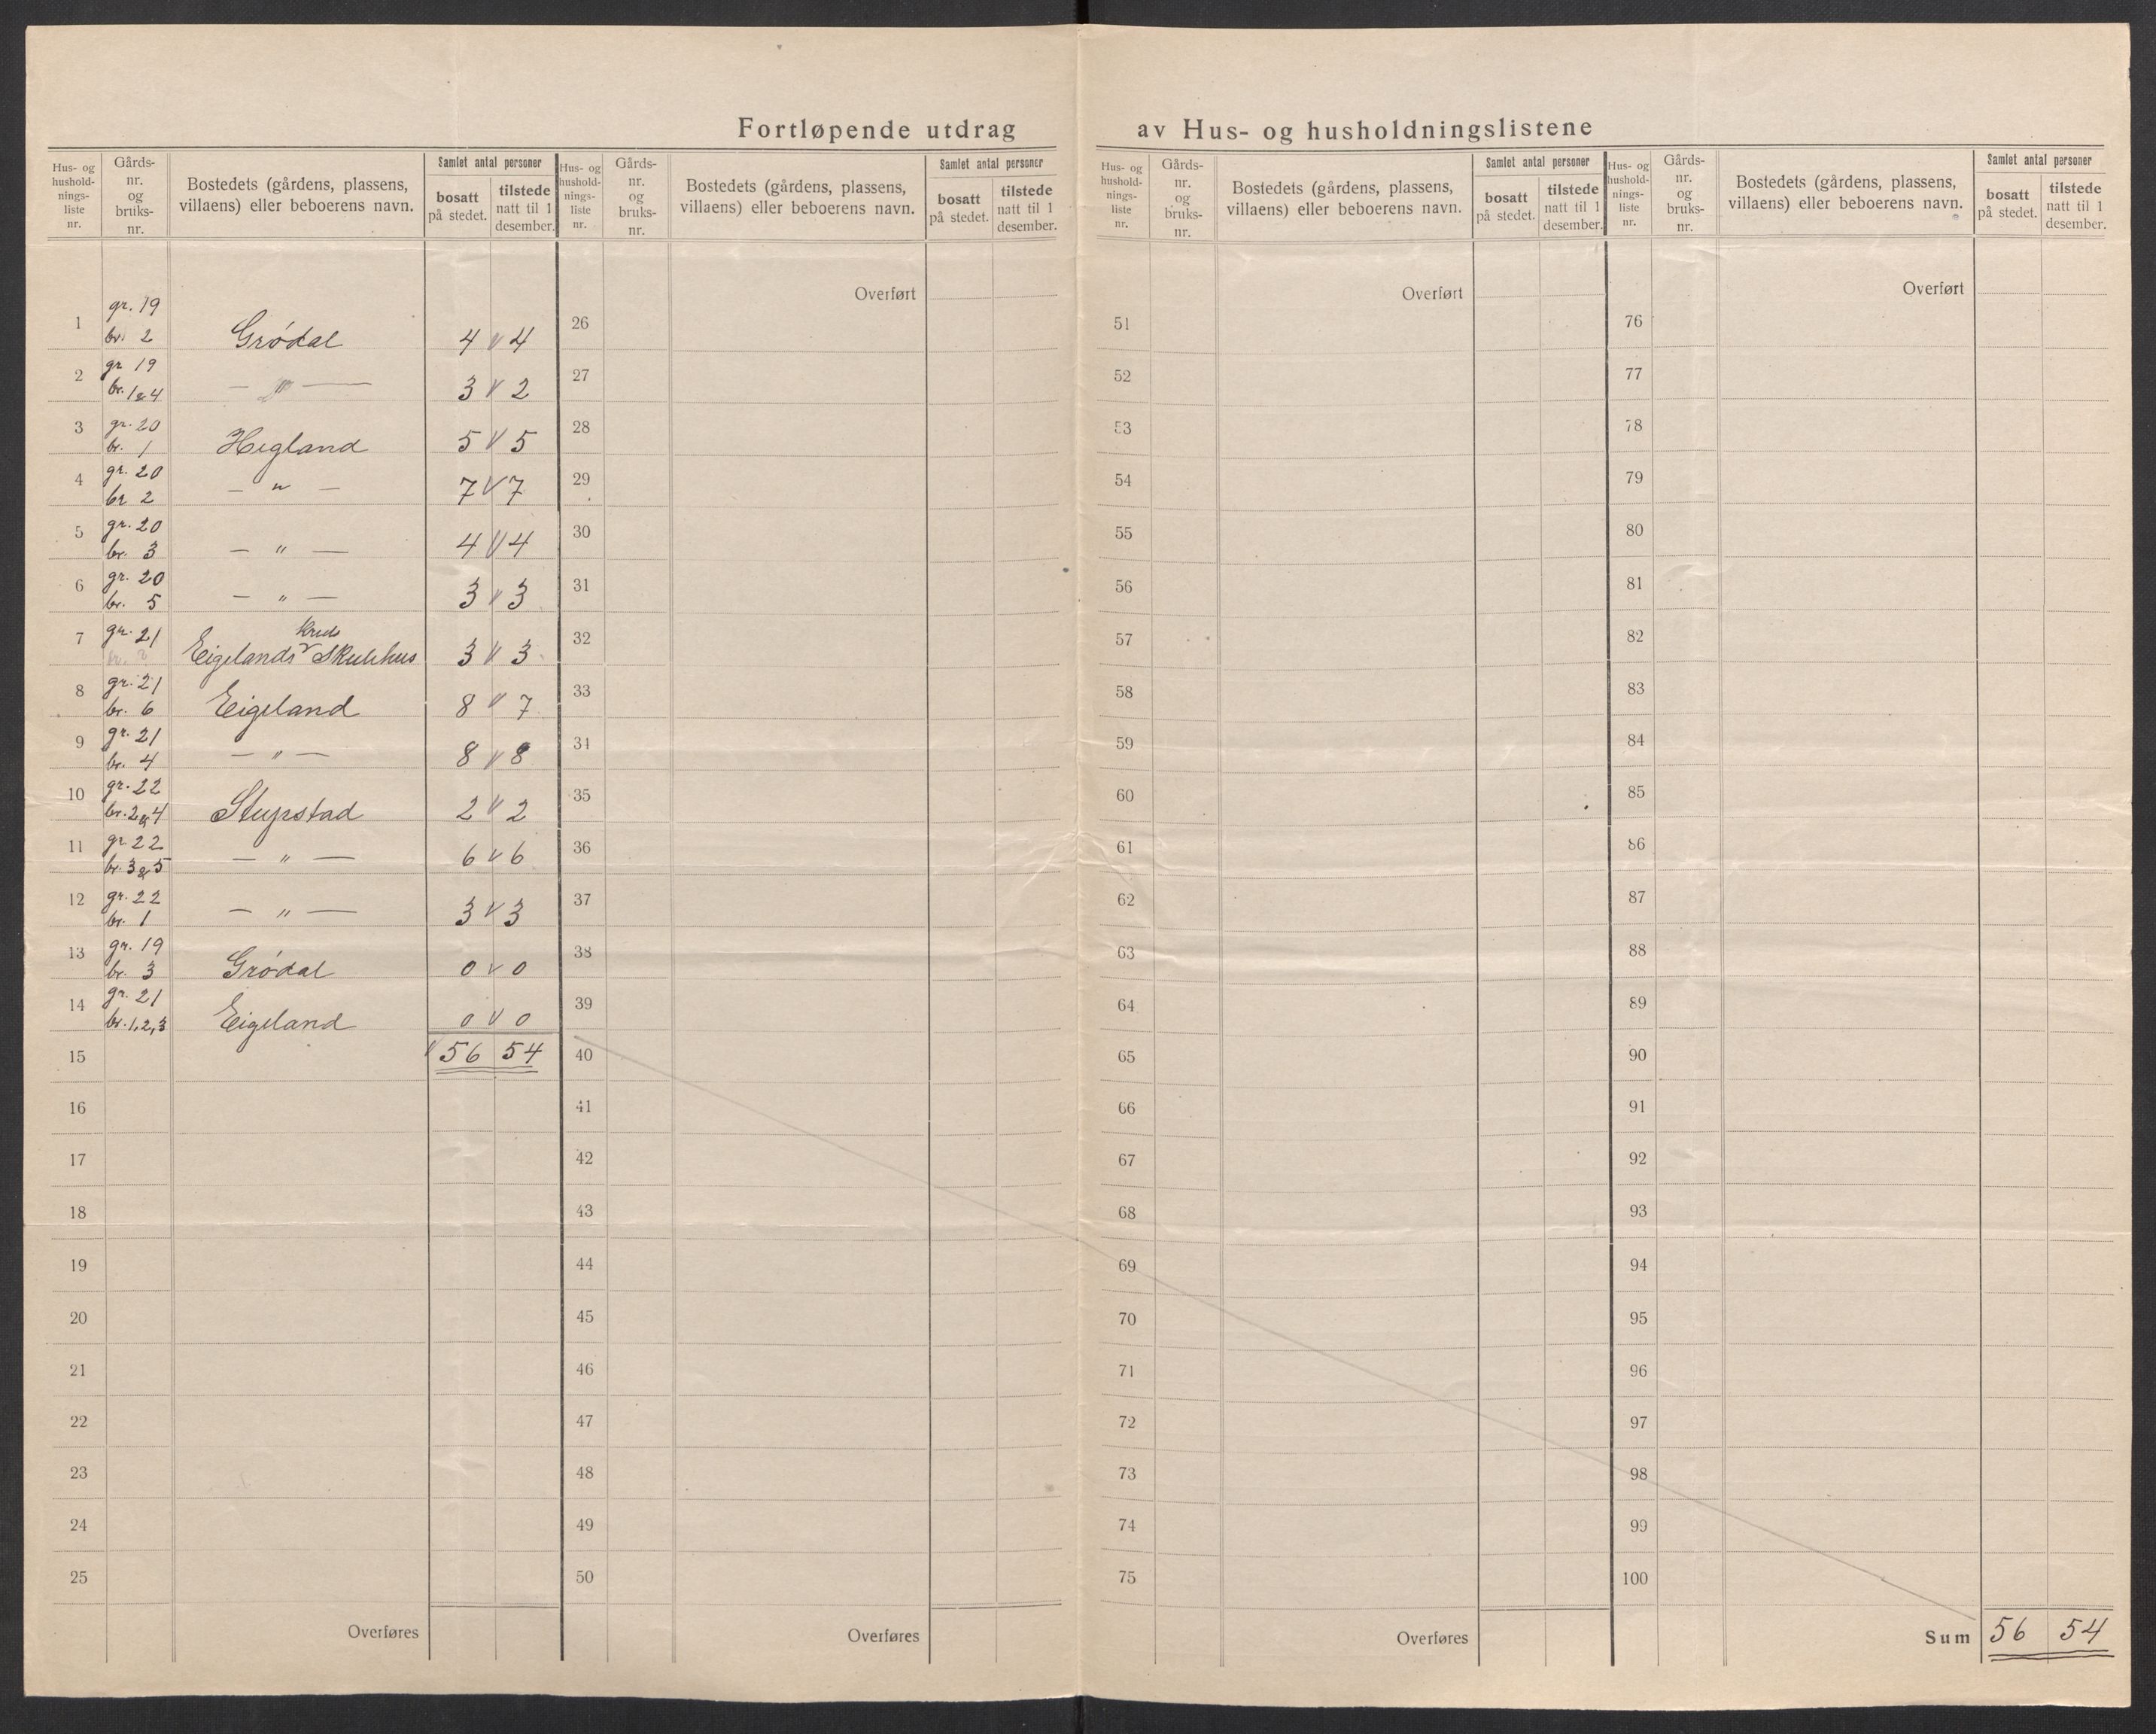 Fortløpende utdrag av Hus- og husholdningslistene
Hus- og hushold-nings-liste nr. | Gårds-nr. og bruks-nr. | Bostedets (gårdens, plassens, villaens) eller beboerens navn. | Samlet antal personer bosatt på stedet. | tilstede natt til 1 desember.
Hus- og hushold-nings-liste nr. | Gårds-nr. og bruks-nr. | Bostedets (gårdens, plassens, villaens) eller beboerens navn. | Samlet antal personer bosatt på stedet. | tilstede natt til 1 desember.
Hus- og hushold-nings-liste nr. | Gårds-nr. og bruks-nr. | Bostedets (gårdens, plassens, villaens) eller beboerens navn. | Samlet antal personer bosatt på stedet. | tilstede natt til 1 desember.
Hus- og hushold-nings-liste nr. | Gårds-nr. og bruks-nr. | Bostedets (gårdens, plassens, villaens) eller beboerens navn. | Samlet antal personer bosatt på stedet. | tilstede natt til 1 desember.
1 gr. 19 br. 2 Gródal 4 v 4
2 gr 19 br. 1 & 4 — " — 3 v 2
3 gr. 20 br. 1 Hegland 5 v 5
4 gr. 20 br 2 — " — 7 v 7
5 gr. 20 br. 3 — " — 4 v 4
6 gr. 20 br. 5 — " — 3 v 3
7 gr. 21 Eigelands krets Skulehus 3 v 3
8 gr. 21 br. 6 Eigeland 8 v 7
9 gr. 21 br. 4 — " — 8 v 8
10 gr. 22 br. 2 & 4 Stupstad 2 v 2
11 gr 22 br. 3 & 5 — " — 6 v 6
12 gr. 22 br. 1 — " — 3 v 3
13 gr. 19 br. 3 Gródal 0 v 0
14 gr. 21 br. 1, 2, 3 Eigeland 0 v 0
15 v 56 54
16
17
18
19
20
21
22
23
24
25
Overføres
Overført
26
27
28
29
30
31
32
33
34
35
36
37
38
39
40
41
42
43
44
45
46
47
48
49
50
Overføres
Overført
51
52
53
54
55
56
57
58
59
60
61
62
63
64
65
66
67
68
69
70
71
72
73
74
75
Overføres
Overført
76
77
78
79
80
81
82
83
84
85
86
87
88
89
90
91
92
93
94
95
96
97
98
99
100
Sum 56 54